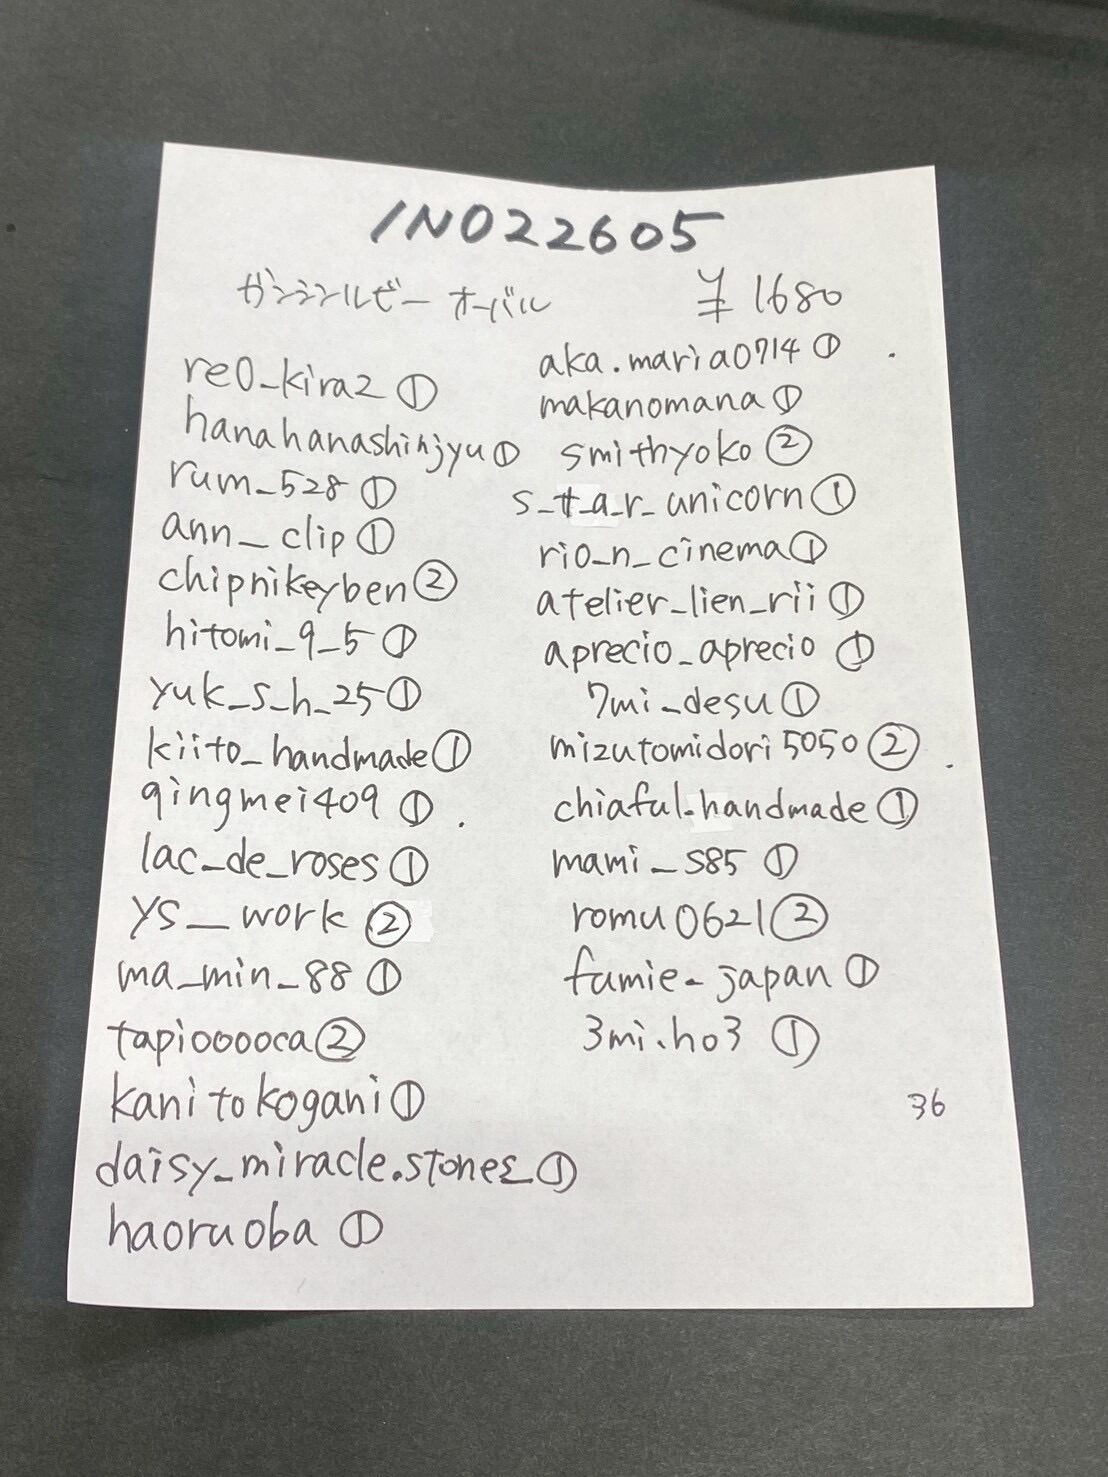 IN022605
ガンジンルビー オーバル ¥1680
re0_kira2 ①
hanahanashinjyu ①
rum_528 ①
ann__clip ①
chipnikeyben ②
hitomi_9_5 ①
yuk_s_h_25 ①
kiito_handmade ①
qingmei409 ①
lac_de_roses ①
ys__work ②
ma_min_88 ①
tapiooooca ②
kanitokogani ①
daisy_miracle.stones_ ①
haoruoba ①
aka.maria0714 ①
makanomana ①
smithyoko ②
s_t_a_r_unicorn ①
rio_n_cinema ①
atelier_lien_rii ①
aprecio_aprecio ①
7mi_desu ①
mizutomidori5050 ②
chiaful.handmade ①
mami_s85 ①
romu0621 ②
fumie_japan ①
3mi.ho3 ①
36